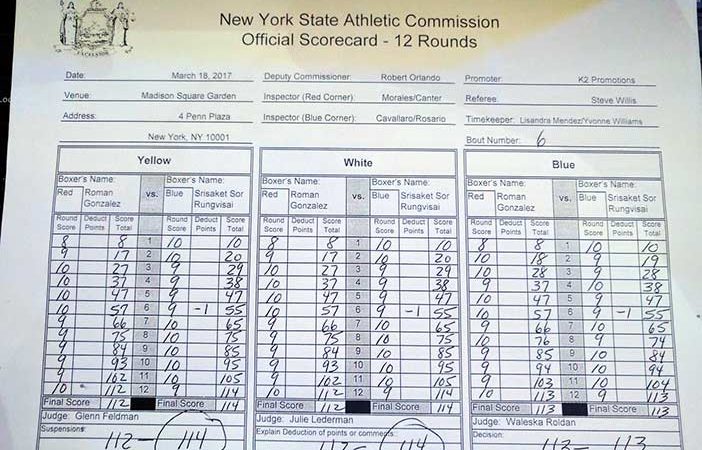 EXCELSIOR
New York State Athletic Commission
Official Scorecard - 12 Rounds
Date: March 18, 2017 Deputy Commissioner: Robert Orlando Promoter: K2 Promotions
Venue: Madison Square Garden Inspector (Red Corner): Morales/Canter Referee: Steve Willis
Address: 4 Penn Plaza Inspector (Blue Corner): Cavallaro/Rosario Timekeeper: Lisandra Mendez/Yvonne Williams
New York, NY 10001 Bout Number: 6
Yellow White Blue
Boxer's Name: Boxer's Name: Boxer's Name: Boxer's Name: Boxer's Name: Boxer's Name:
Red Roman Gonzalez vs. Blue Srisaket Sor Rungvisai Red Roman Gonzalez vs. Blue Srisaket Sor Rungvisai Red Roman Gonzalez vs. Blue Srisaket Sor Rungvisai
Round Score Deduct Points Score Total Round Score Deduct Points Score Total Round Score Deduct Points Score Total Round Score Deduct Points Score Total Round Score Deduct Points Score Total Round Score Deduct Points Score Total
8 8 1 10 10 8 8 1 10 10 8 8 1 10 10
9 17 2 10 20 9 17 2 10 20 10 18 2 9 19
10 27 3 9 29 10 27 3 9 29 10 28 3 9 28
10 37 4 9 38 10 37 4 9 38 9 37 4 10 38
10 47 5 9 47 10 47 5 9 47 10 47 5 9 47
10 57 6 9 -1 55 10 57 6 9 -1 55 10 57 6 9 -1 55
9 66 7 10 65 9 66 7 10 65 9 66 7 10 65
9 75 8 10 75 9 75 8 10 75 10 76 8 9 74
9 84 9 10 85 9 84 9 10 85 9 85 9 10 84
9 93 10 10 95 9 93 10 10 95 9 94 10 10 94
9 102 11 10 105 9 102 11 10 105 9 103 11 10 104
10 112 12 9 114 10 112 12 9 114 10 113 12 9 113
Final Score 112 Final Score 114 Final Score 112 Final Score 114 Final Score 113 Final Score 113
Judge: Glenn Feldman Judge: Julie Lederman Judge: Waleska Roldan
Suspensions: Explain Deduction of points or comments: Decision:
112 - 114 112 - 114 113 - 113